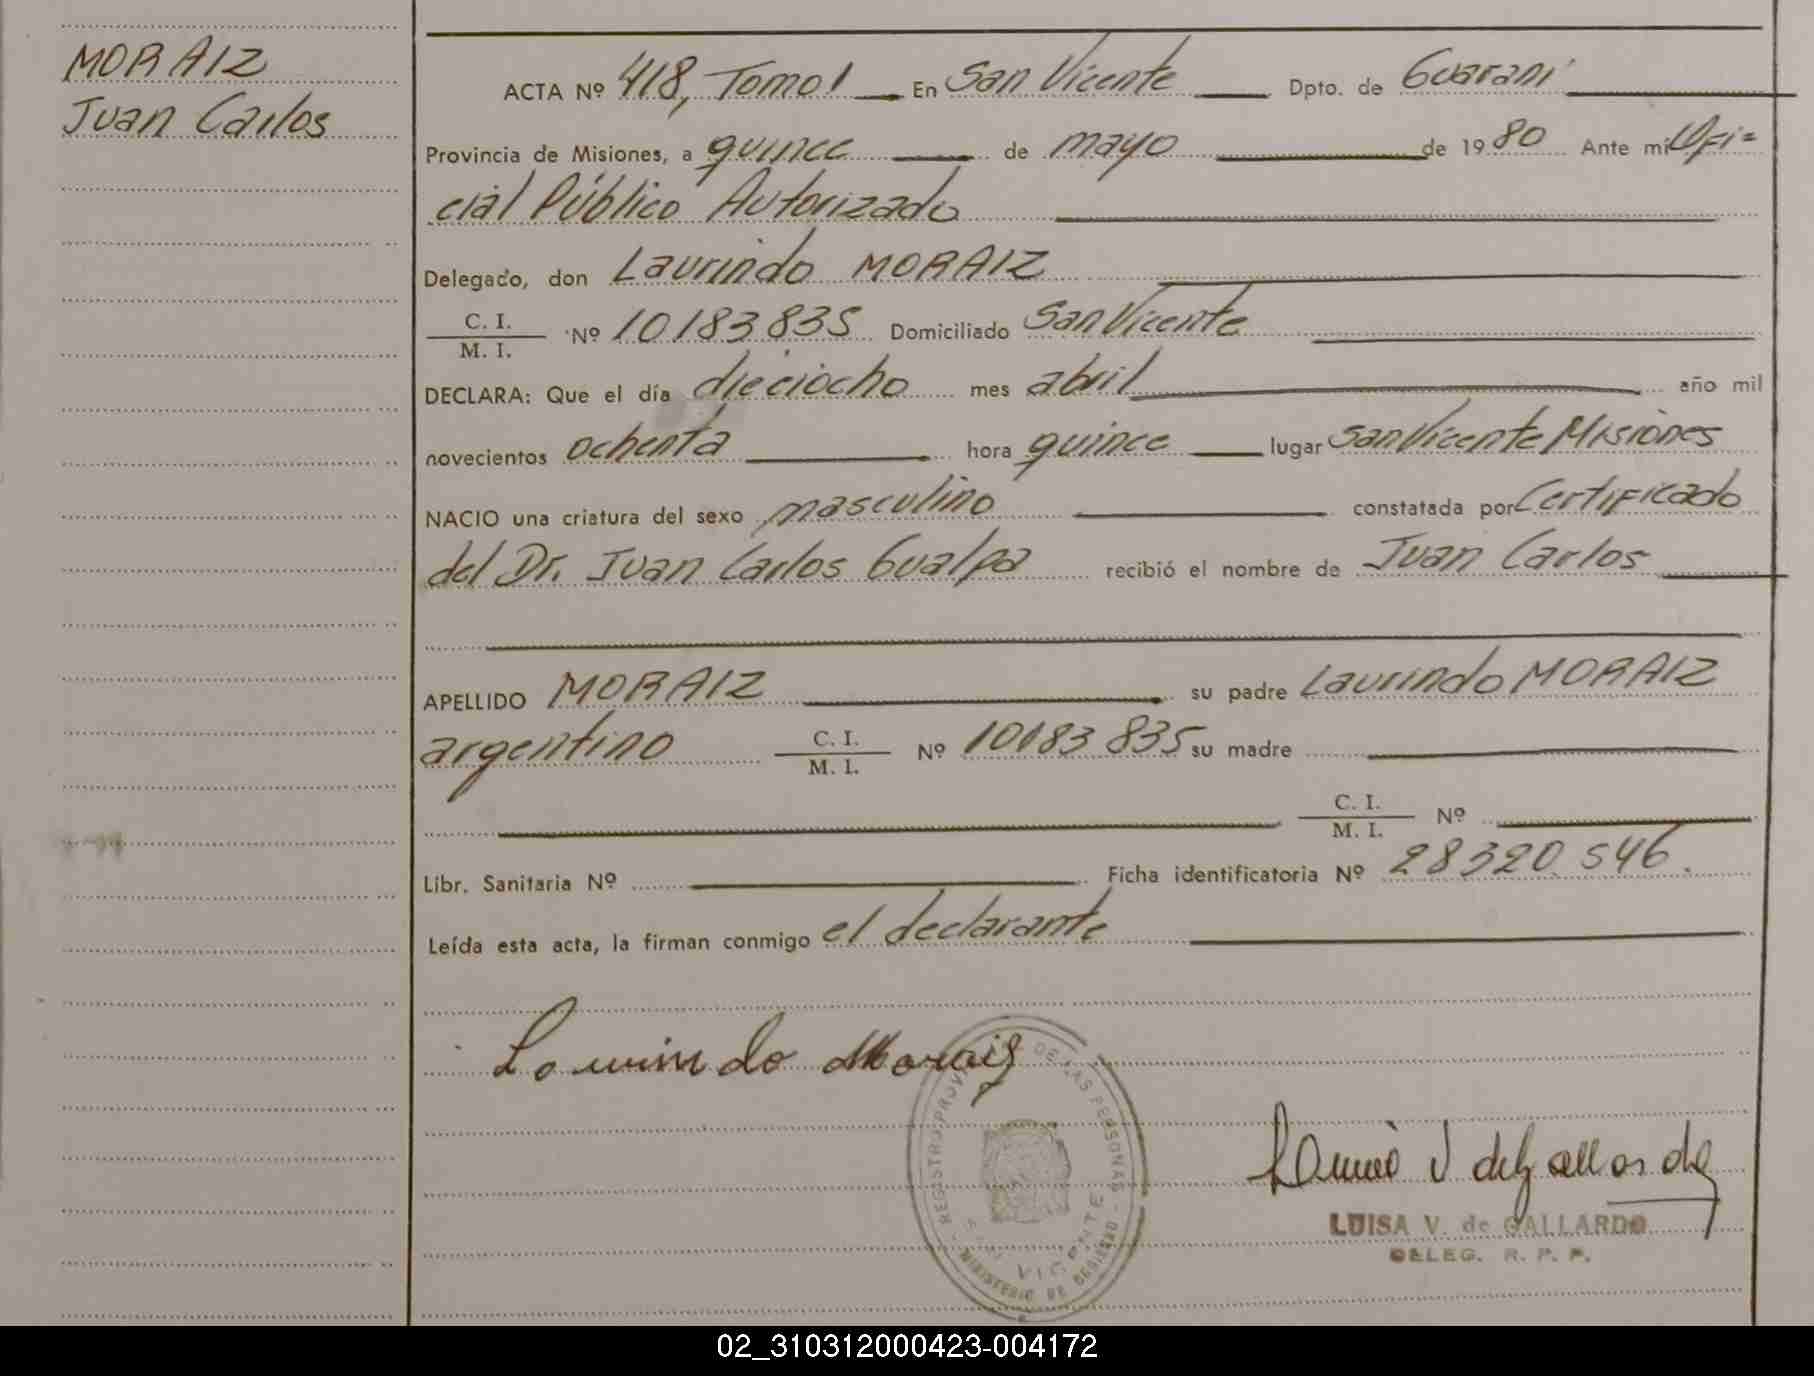 MORAIZ
Juan Carlos
ACTA Nº 418, Tomo I En San Vicente Dpto. de Guaraní
Provincia de Misiones, a quince de mayo de 1980 Ante mi Ofi=
cial Público Autorizado
Delegado, don Laurindo MORAIZ
C. I.
M. I. Nº 10183835 Domiciliado San Vicente
DECLARA: Que el día dieciocho mes abril año mil
novecientos ochenta hora quince lugar San Vicente Misiones
NACIO una criatura del sexo masculino constatada por Certificado
del Dr. Juan Carlos Gualpa recibió el nombre de Juan Carlos
APELLIDO MORAIZ su padre Laurindo MORAIZ
argentino C. I.
M. I. Nº 10183835 su madre
C. I.
M. I. Nº
Libr. Sanitaria Nº Ficha identificatoria Nº 28320.546.
Leída esta acta, la firman conmigo el declarante
REGISTRO PROV DE LAS PERSONAS
VICENTE
MINISTERIO DE
LUISA V. de GALLARDO
DELEG. R. P. P.
02_310312000423-004172